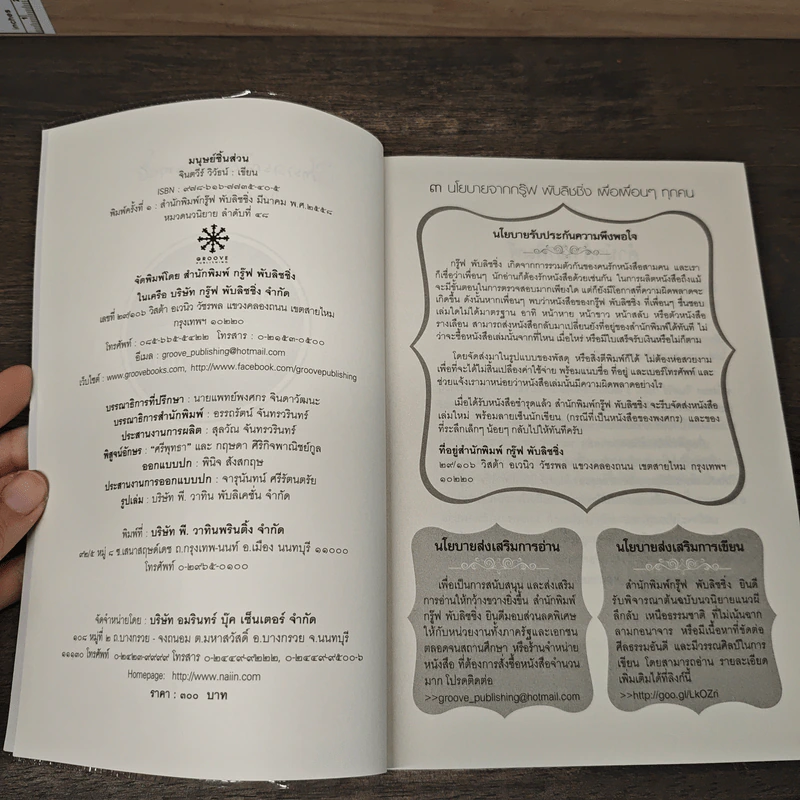 มนุษย์ชิ้นส่วน
จินตวีร์ วิวัธน์ : เขียน
ISBN : ๙๗๘-๖๑๖-๗๗๓๕-๔๐-๕
พิมพ์ครั้งที่ ๑ : สำนักพิมพ์กรู๊ฟ พับลิชชิ่ง มีนาคม พ.ศ.๒๕๕๘
หมวดนวนิยาย ลำดับที่ ๔๘
GROOVE
PUBLISHING
จัดพิมพ์โดย สำนักพิมพ์ กรู๊ฟ พับลิชชิ่ง
ในเครือ บริษัท กรู๊ฟ พับลิชชิ่ง จำกัด
เลขที่ ๒๙/๑๐๖ วิสต้า อเวนิว วัชรพล แขวงคลองถนน เขตสายไหม
กรุงเทพฯ ๑๐๒๒๐
โทรศัพท์ : ๐๘๕-๖๖๕-๕๔๒๒ โทรสาร : ๐-๒๑๕๓-๐๕๐๐
อีเมล : groove_publishing@hotmail.com
เว็บไซต์ : www.groovebooks.com, http://www.facebook.com/groovepublishing
บรรณาธิการที่ปรึกษา : นายแพทย์พงศกร จินดาวัฒนะ
บรรณาธิการสำนักพิมพ์ : อรรถรัตน์ จันทรวรินทร์
ประสานงานการผลิต : สุลวัณ จันทรวรินทร์
พิสูจน์อักษร : "ศรีพุทธา" และ กฤษดา ศิริกิจพาณิชย์กูล
ออกแบบปก : พินิจ สังสกฤษ
ประสานงานการออกแบบปก : จารุนันทน์ ศรีรัตนตรัย
รูปเล่ม : บริษัท พี. วาทิน พับลิเคชั่น จำกัด
พิมพ์ที่ : บริษัท พี. วาทินพรินติ้ง จำกัด
๙๒/๕ หมู่ ๘ ซ.เสนาสฤษดิ์เดช ถ.กรุงเทพ-นนท์ อ.เมือง นนทบุรี ๑๑๐๐๐
โทรศัพท์ ๐-๒๙๖๕-๐๑๐๐
จัดจำหน่ายโดย : บริษัท อมรินทร์ บุ๊ค เซ็นเตอร์ จำกัด
๑๐๘ หมู่ที่ ๒ ถ.บางกรวย - จงถนอม ต.มหาสวัสดิ์ อ.บางกรวย จ.นนทบุรี
๑๑๑๓๐ โทรศัพท์ ๐-๒๔๒๓-๙๙๙๙ โทรสาร ๐-๒๔๔๙-๙๒๒๒, ๐-๒๔๔๙-๙๕๐๐-๖
Homepage: http://www.naiin.com
ราคา : ๓๐๐ บาท
๓ นโยบายจากกรู๊ฟ พับลิชชิ่ง เพื่อเพื่อนๆ ทุกคน
นโยบายรับประกันความพึงพอใจ
กรู๊ฟ พับลิชชิ่ง เกิดจากการรวมตัวกันของคนรักหนังสือสามคน และเรา
ก็เชื่อว่าเพื่อนๆ นักอ่านก็ต้องรักหนังสือด้วยเช่นกัน ในการผลิตหนังสือถึงแม้
จะมีขั้นตอนในการตรวจสอบมากเพียงใด แต่ก็ยังมีโอกาสที่ความผิดพลาดจะ
เกิดขึ้น ดังนั้นหากเพื่อนๆ พบว่าหนังสือของกรู๊ฟ พับลิชชิ่ง ที่เพื่อนๆ ชื่นชอบ
เล่มใดไม่ได้มาตรฐาน อาทิ หน้าหาย หน้าขาว หน้าสลับ หรือตัวหนังสือ
รางเลือน สามารถส่งหนังสือกลับมาเปลี่ยนยังที่อยู่ของสำนักพิมพ์ได้ทันที ไม่
ว่าจะซื้อหนังสือเล่มนั้นจากที่ไหน เมื่อไหร่ หรือมีใบเสร็จรับเงินหรือไม่ก็ตาม
โดยจัดส่งมาในรูปแบบของพัสดุ หรือสิ่งตีพิมพ์ก็ได้ ไม่ต้องห่อสวยงาม
เพื่อที่จะได้ไม่สิ้นเปลืองค่าใช้จ่าย พร้อมแนบชื่อ ที่อยู่ และเบอร์โทรศัพท์ และ
ช่วยแจ้งเรามาหน่อยว่าหนังสือเล่มนั้นมีความผิดพลาดอย่างไร
เมื่อได้รับหนังสือชำรุดแล้ว สำนักพิมพ์กรู๊ฟ พับลิชชิ่ง จะรีบจัดส่งหนังสือ
เล่มใหม่ พร้อมลายเซ็นนักเขียน (กรณีที่เป็นหนังสือของพงศกร) และของ
ที่ระลึกเล็กๆ น้อยๆ กลับไปให้ทันทีครับ
ที่อยู่สำนักพิมพ์ กรู๊ฟ พับลิชชิ่ง
๒๙/๑๐๖ วิสต้า อเวนิว วัชรพล แขวงคลองถนน เขตสายไหม กรุงเทพฯ
๑๐๒๒๐
นโยบายส่งเสริมการอ่าน
เพื่อเป็นการสนับสนุน และส่งเสริม
การอ่านให้กว้างขวางยิ่งขึ้น สำนักพิมพ์
กรู๊ฟ พับลิชชิ่ง ยินดีมอบส่วนลดพิเศษ
ให้กับหน่วยงานทั้งภาครัฐและเอกชน
ตลอดจนสถานศึกษา หรือร้านจำหน่าย
หนังสือ ที่ต้องการสั่งซื้อหนังสือจำนวน
มาก โปรดติดต่อ
>>groove_publishing@hotmail.com
นโยบายส่งเสริมการเขียน
สำนักพิมพ์กรู๊ฟ พับลิชชิ่ง ยินดี
รับพิจารณาต้นฉบับนวนิยายแนวผี
ลึกลับ เหนือธรรมชาติ ที่ไม่เน้นฉาก
ลามกอนาจาร หรือมีเนื้อหาที่ขัดต่อ
ศีลธรรมอันดี และมีวรรณศิลป์ในการ
เขียน โดยสามารถอ่าน รายละเอียด
เพิ่มเติมได้ที่ลิงก์นี้
>>http://goo.gl/LkOZri